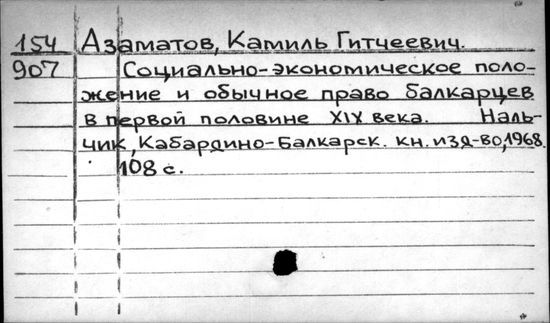 154 Азаматов, Камиль Гитчеевич.
907 Социально-экономическое поло-
жение и обычное право балкарцев
в первой половине XIX века. Наль-
чик, Кабардино-Балкарск. кн. изд-во, 1968.
108 с.